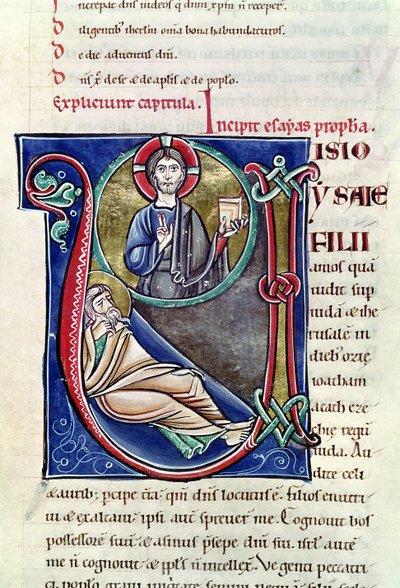 ncrepac dn̄s iudeos q dn̄m xp̄m n̄ receper̄.
D iligentib; iherlm̄ om̄a bona habundaturos.
D e die aduentus dn̄i.
D n̄s x̄ de se & de aplīs & de poplo.
Expliciunt capitula.
Incipit esayas propha.
VISIO
YSAIE
FILII
amos quā
uidit sup
iudā & ihe
rusalē in
dieb; ozię
ioacham
acath eze
chię regū
iuda. Au
dite celi
& aurib; pcipe t̄ra. qm̄ dn̄s locutus ē. filios enutri
ui & exaltaui. ipsi aut̄ spreuer̄ me. Cognouit bos
possessorē suū & asinus psepe dn̄i sui. isrl̄ aut̄
me n̄ cognouit & ppl̄s n̄ intellex̄. Ve genti peccatri
ci. poplo graui